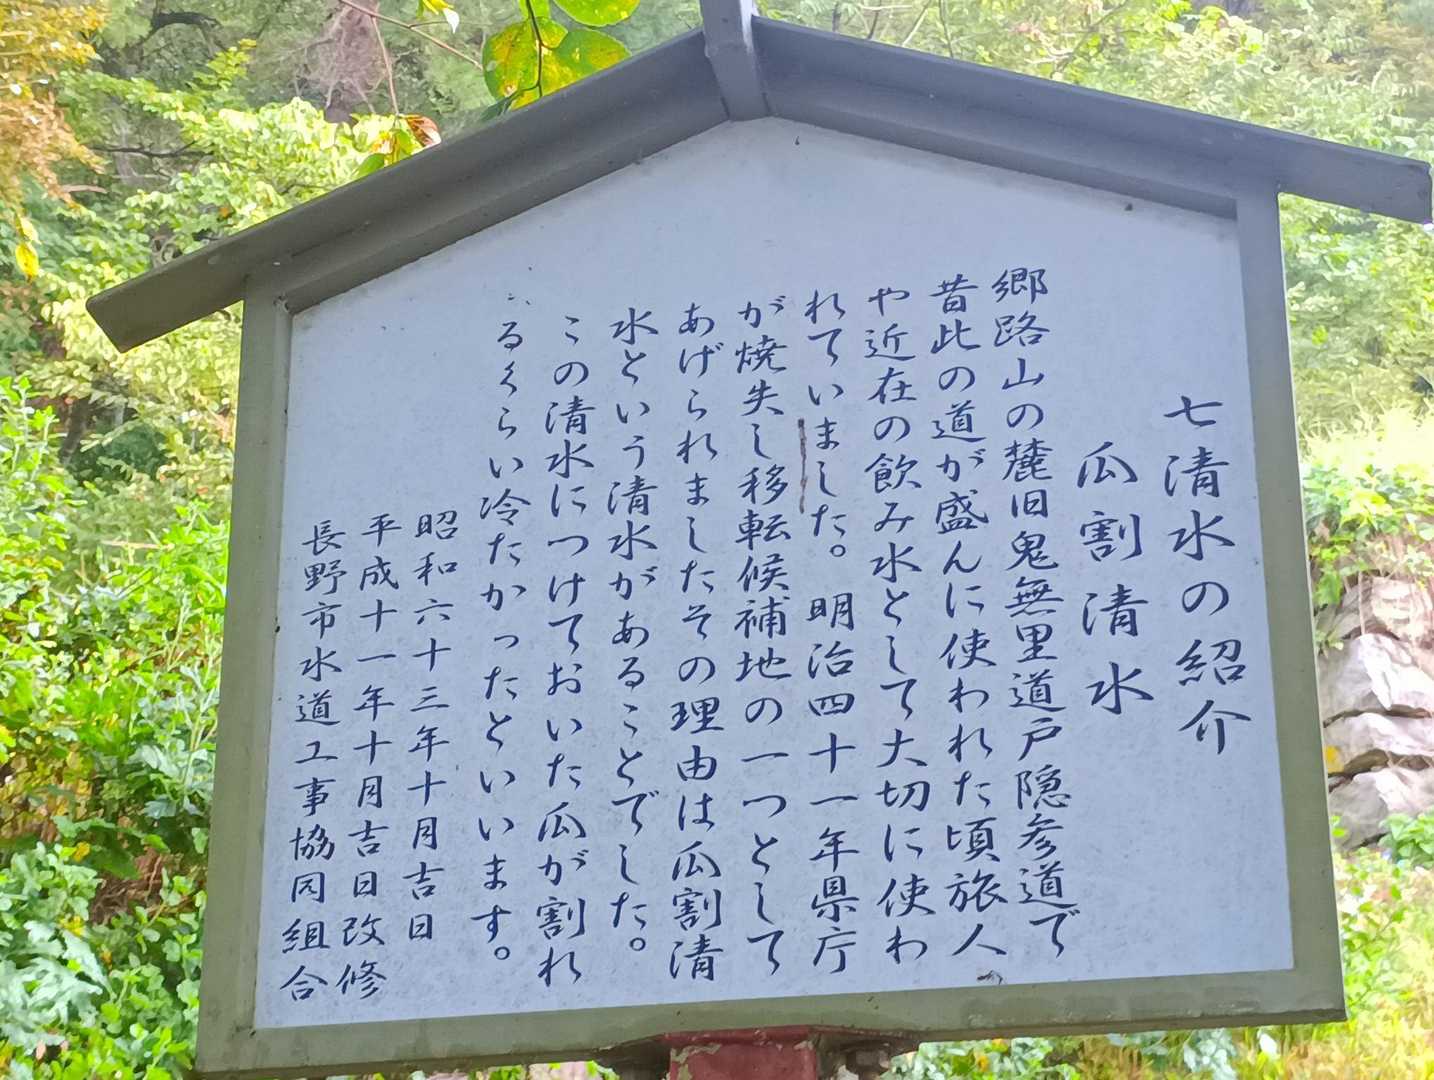 七清水の紹介
瓜割清水
郷路山の麓旧鬼無里道戸隠参道で
昔此の道が盛んに使われた頃旅人
や近在の飲み水として大切に使わ
れていました。明治四十一年県庁
が焼失し移転候補地の一つとして
あげられましたその理由は瓜割清
水という清水があることでした。
この清水につけておいた瓜が割れ
るくらい冷たかったといいます。
昭和六十三年十月吉日
平成十一年十月吉日改修
長野市水道工事協同組合